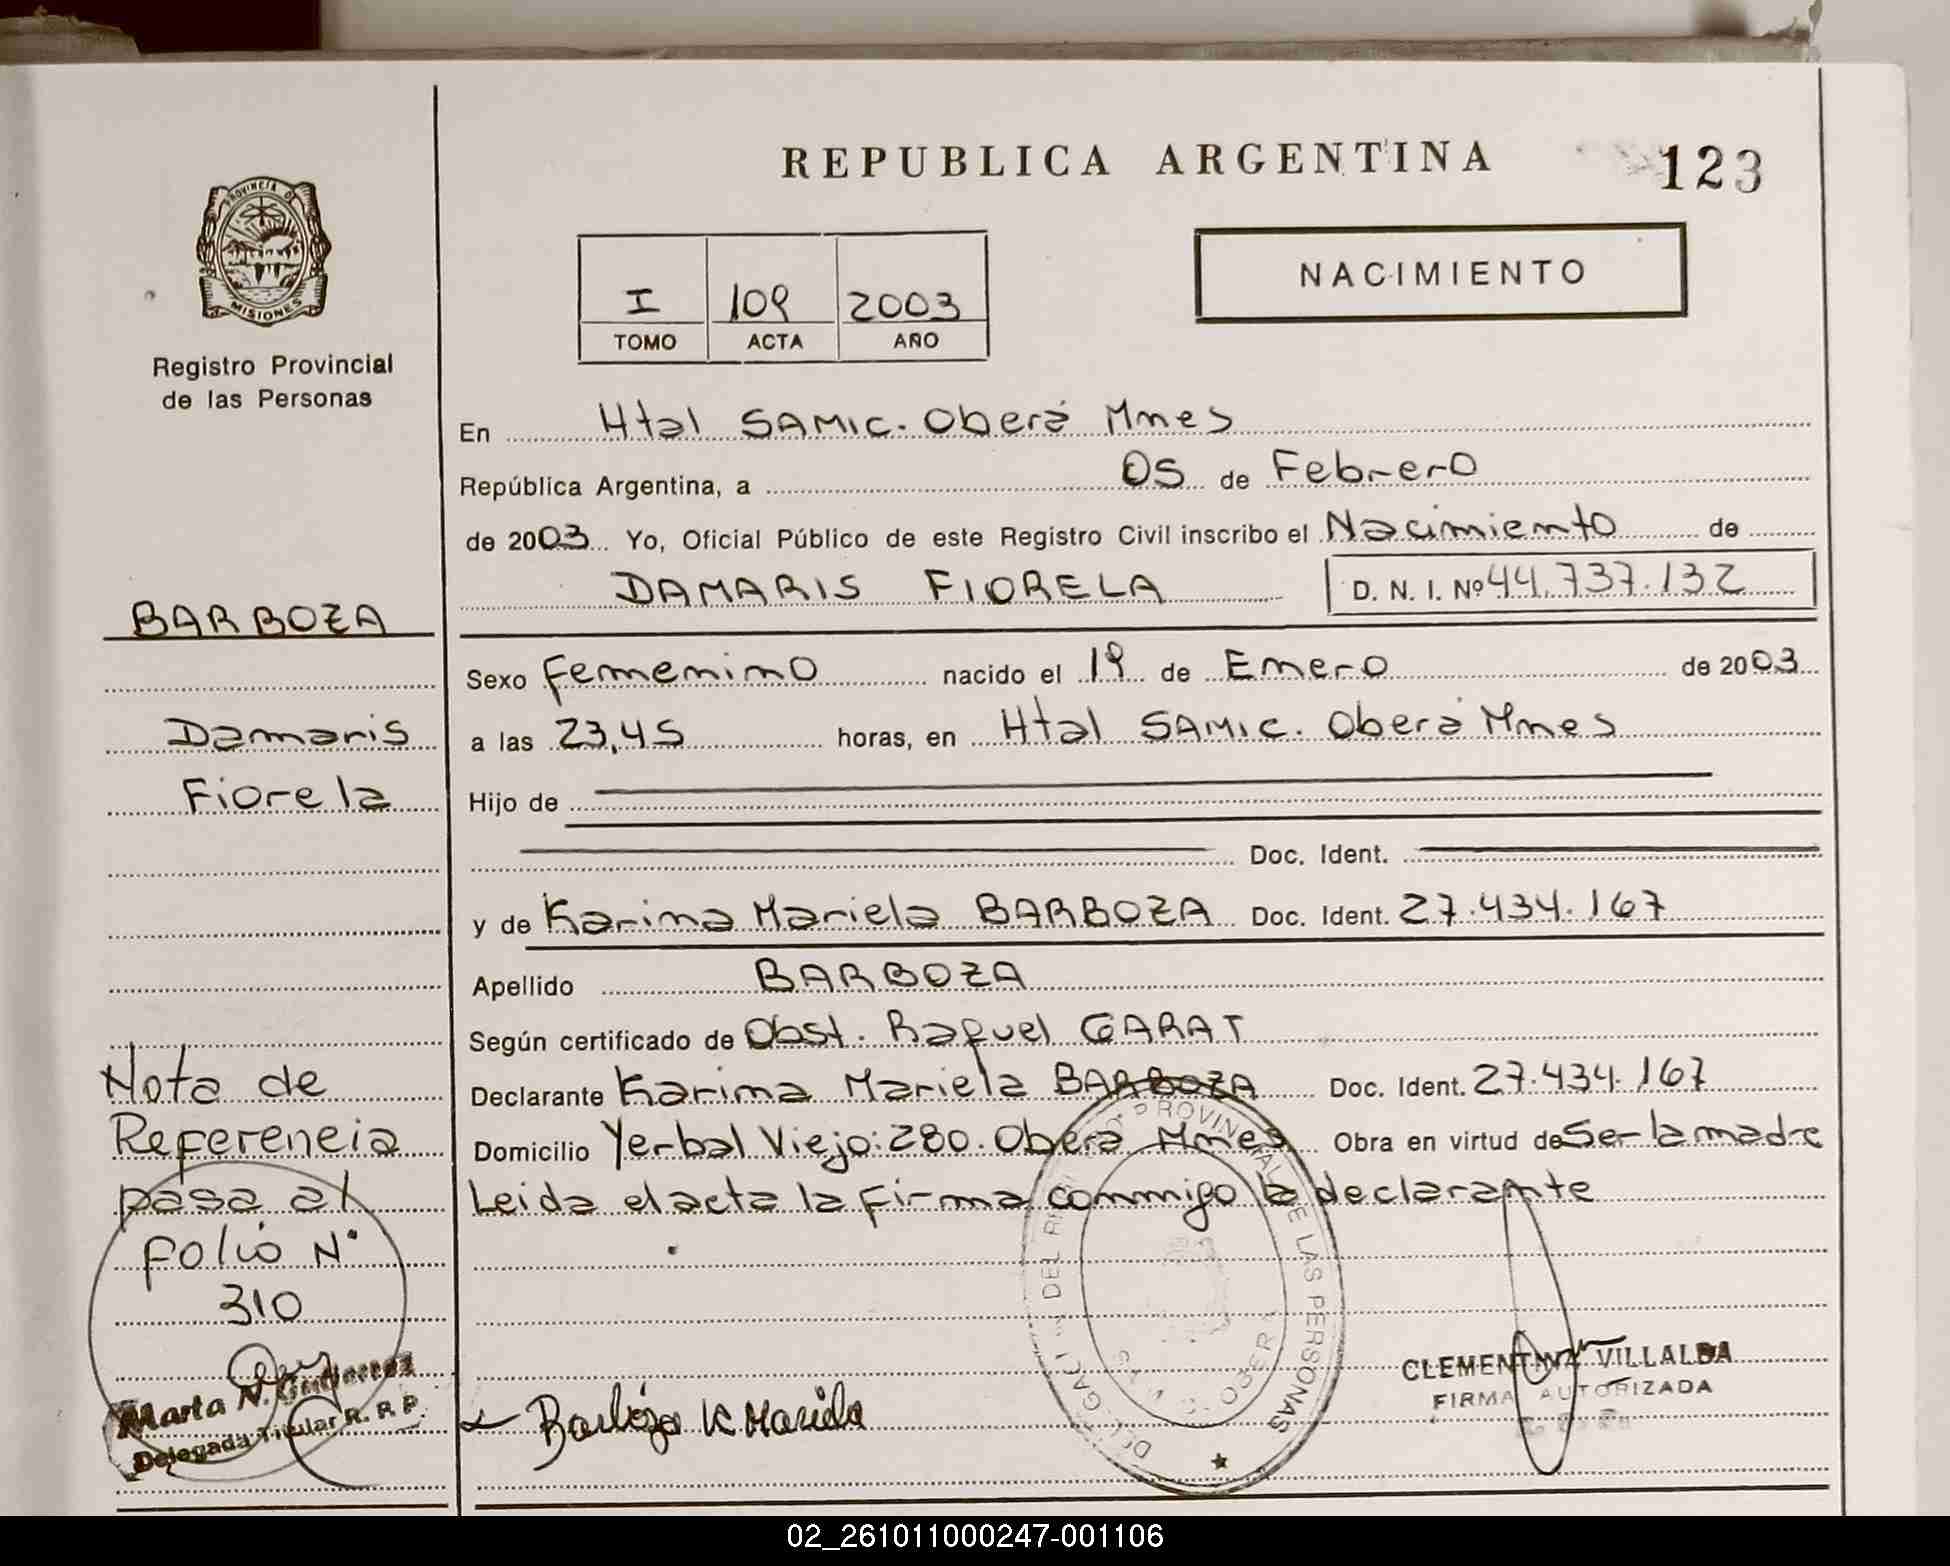 REPUBLICA ARGENTINA
123
PROVINCIA DE
MISIONES
Registro Provincial
de las Personas
I 109 2003
TOMO ACTA AÑO
NACIMIENTO
En Htal SAMIC. Oberá Mnes
República Argentina, a 05 de Febrero
de 2003 Yo, Oficial Público de este Registro Civil inscribo el Nacimiento de
DAMARIS FIORELA D. N. I. Nº 44.737.132
BARBOZA
Damaris
Fiorela
Sexo Femenino nacido el 19 de Enero de 2003
a las 23,45 horas, en Htal SAMIC. Oberá Mnes
Hijo de
Doc. Ident.
y de Karina Mariela BARBOZA Doc. Ident. 27.434.167
Apellido BARBOZA
Según certificado de Obst. Raquel GARAT
Declarante Karina Mariela BARBOZA Doc. Ident. 27.434.167
Domicilio Yerbal Viejo: 280. Oberá Mnes Obra en virtud de Ser la madre
Leida el acta la firma conmigo la declarante
Nota de
Referencia
pasa al
folio N°
310
Marta N. Gutierrez
Delegada Titular R. P. P.
Barboza K Mariela
DEL PROVINCIAL DE LAS PERSONAS
OBERA
CLEMENTINA VILLALBA
FIRMA AUTORIZADA
02_261011000247-001106